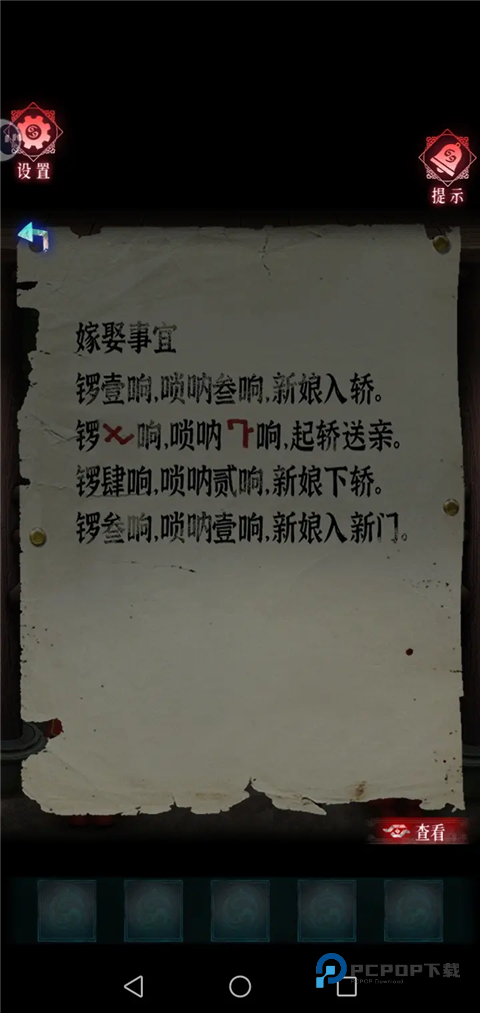 设置
提示
嫁娶事宜
锣壹响,唢呐叁响,新娘入轿。
锣〤响,唢呐〧响,起轿送亲。
锣肆响,唢呐贰响,新娘下轿。
锣叁响,唢呐壹响,新娘入新门。
查看
PCPOP下载
PCPOP Download